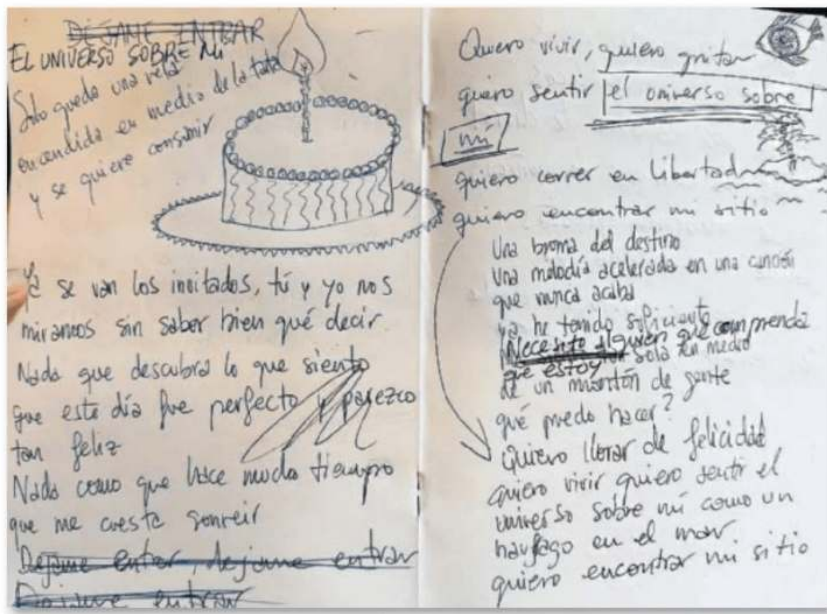 DÉJAME ENTRAR
EL UNIVERSO SOBRE MÍ
Solo queda una vela
encendida en medio de la tarta
y se quiere consumir
Ya se van los invitados, tú y yo nos
miramos sin saber bien qué decir
Nada que descubra lo que siento
que este día fue perfecto y parezco
tan feliz
Nada como que hace mucho tiempo
que me cuesta sonreir
Dejame entrar, dejame entrar
Dejame entrar
Quiero vivir, quiero gritar
quiero sentir el universo sobre
mí
quiero correr en libertad
quiero encontrar mi sitio
Una broma del destino
Una melodía acelerada en una canción
que nunca acaba
ya he tenido suficiente
Necesito alguien que comprenda
que estoy sola en medio
de un montón de gente
qué puedo hacer?
Quiero llorar de felicidad
quiero vivir quiero sentir el
universo sobre mí como un
naufago en el mar
quiero encontrar mi sitio